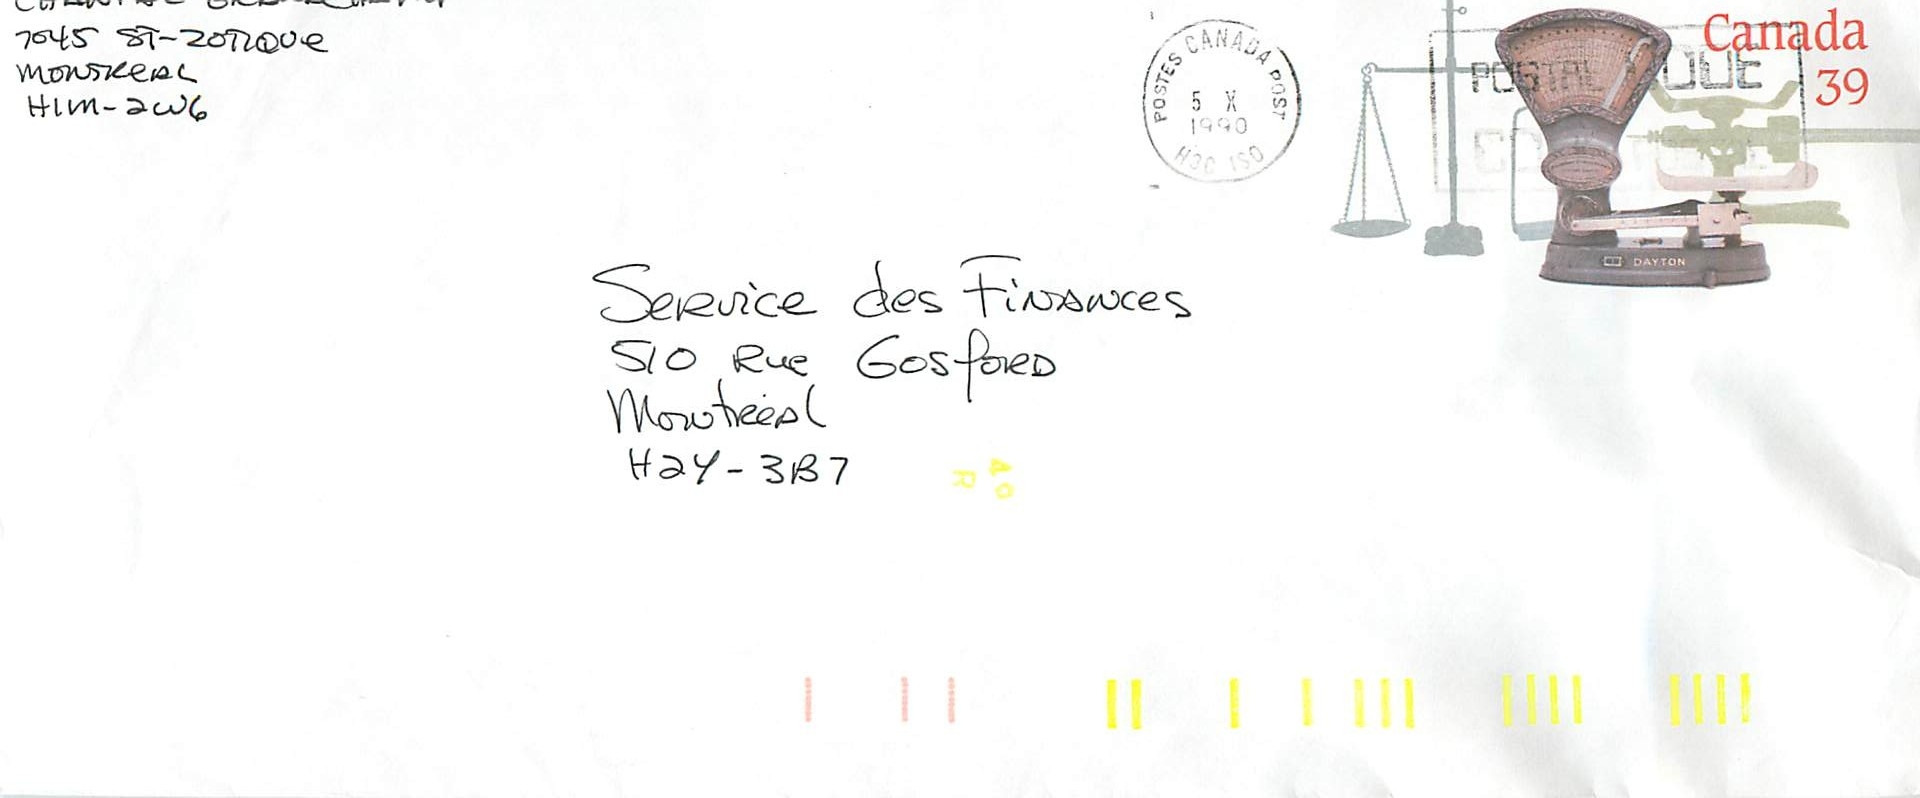 7045 ST-ZOTIQUE
MONTREAL
H1M-2W6
POSTES CANADA POST
5 X
1990
H3C 1S0
POSTAL CODE
Canada
39
DAYTON
Service des Finances
510 Rue Gosford
Montréal
H2Y-3B7
40
R